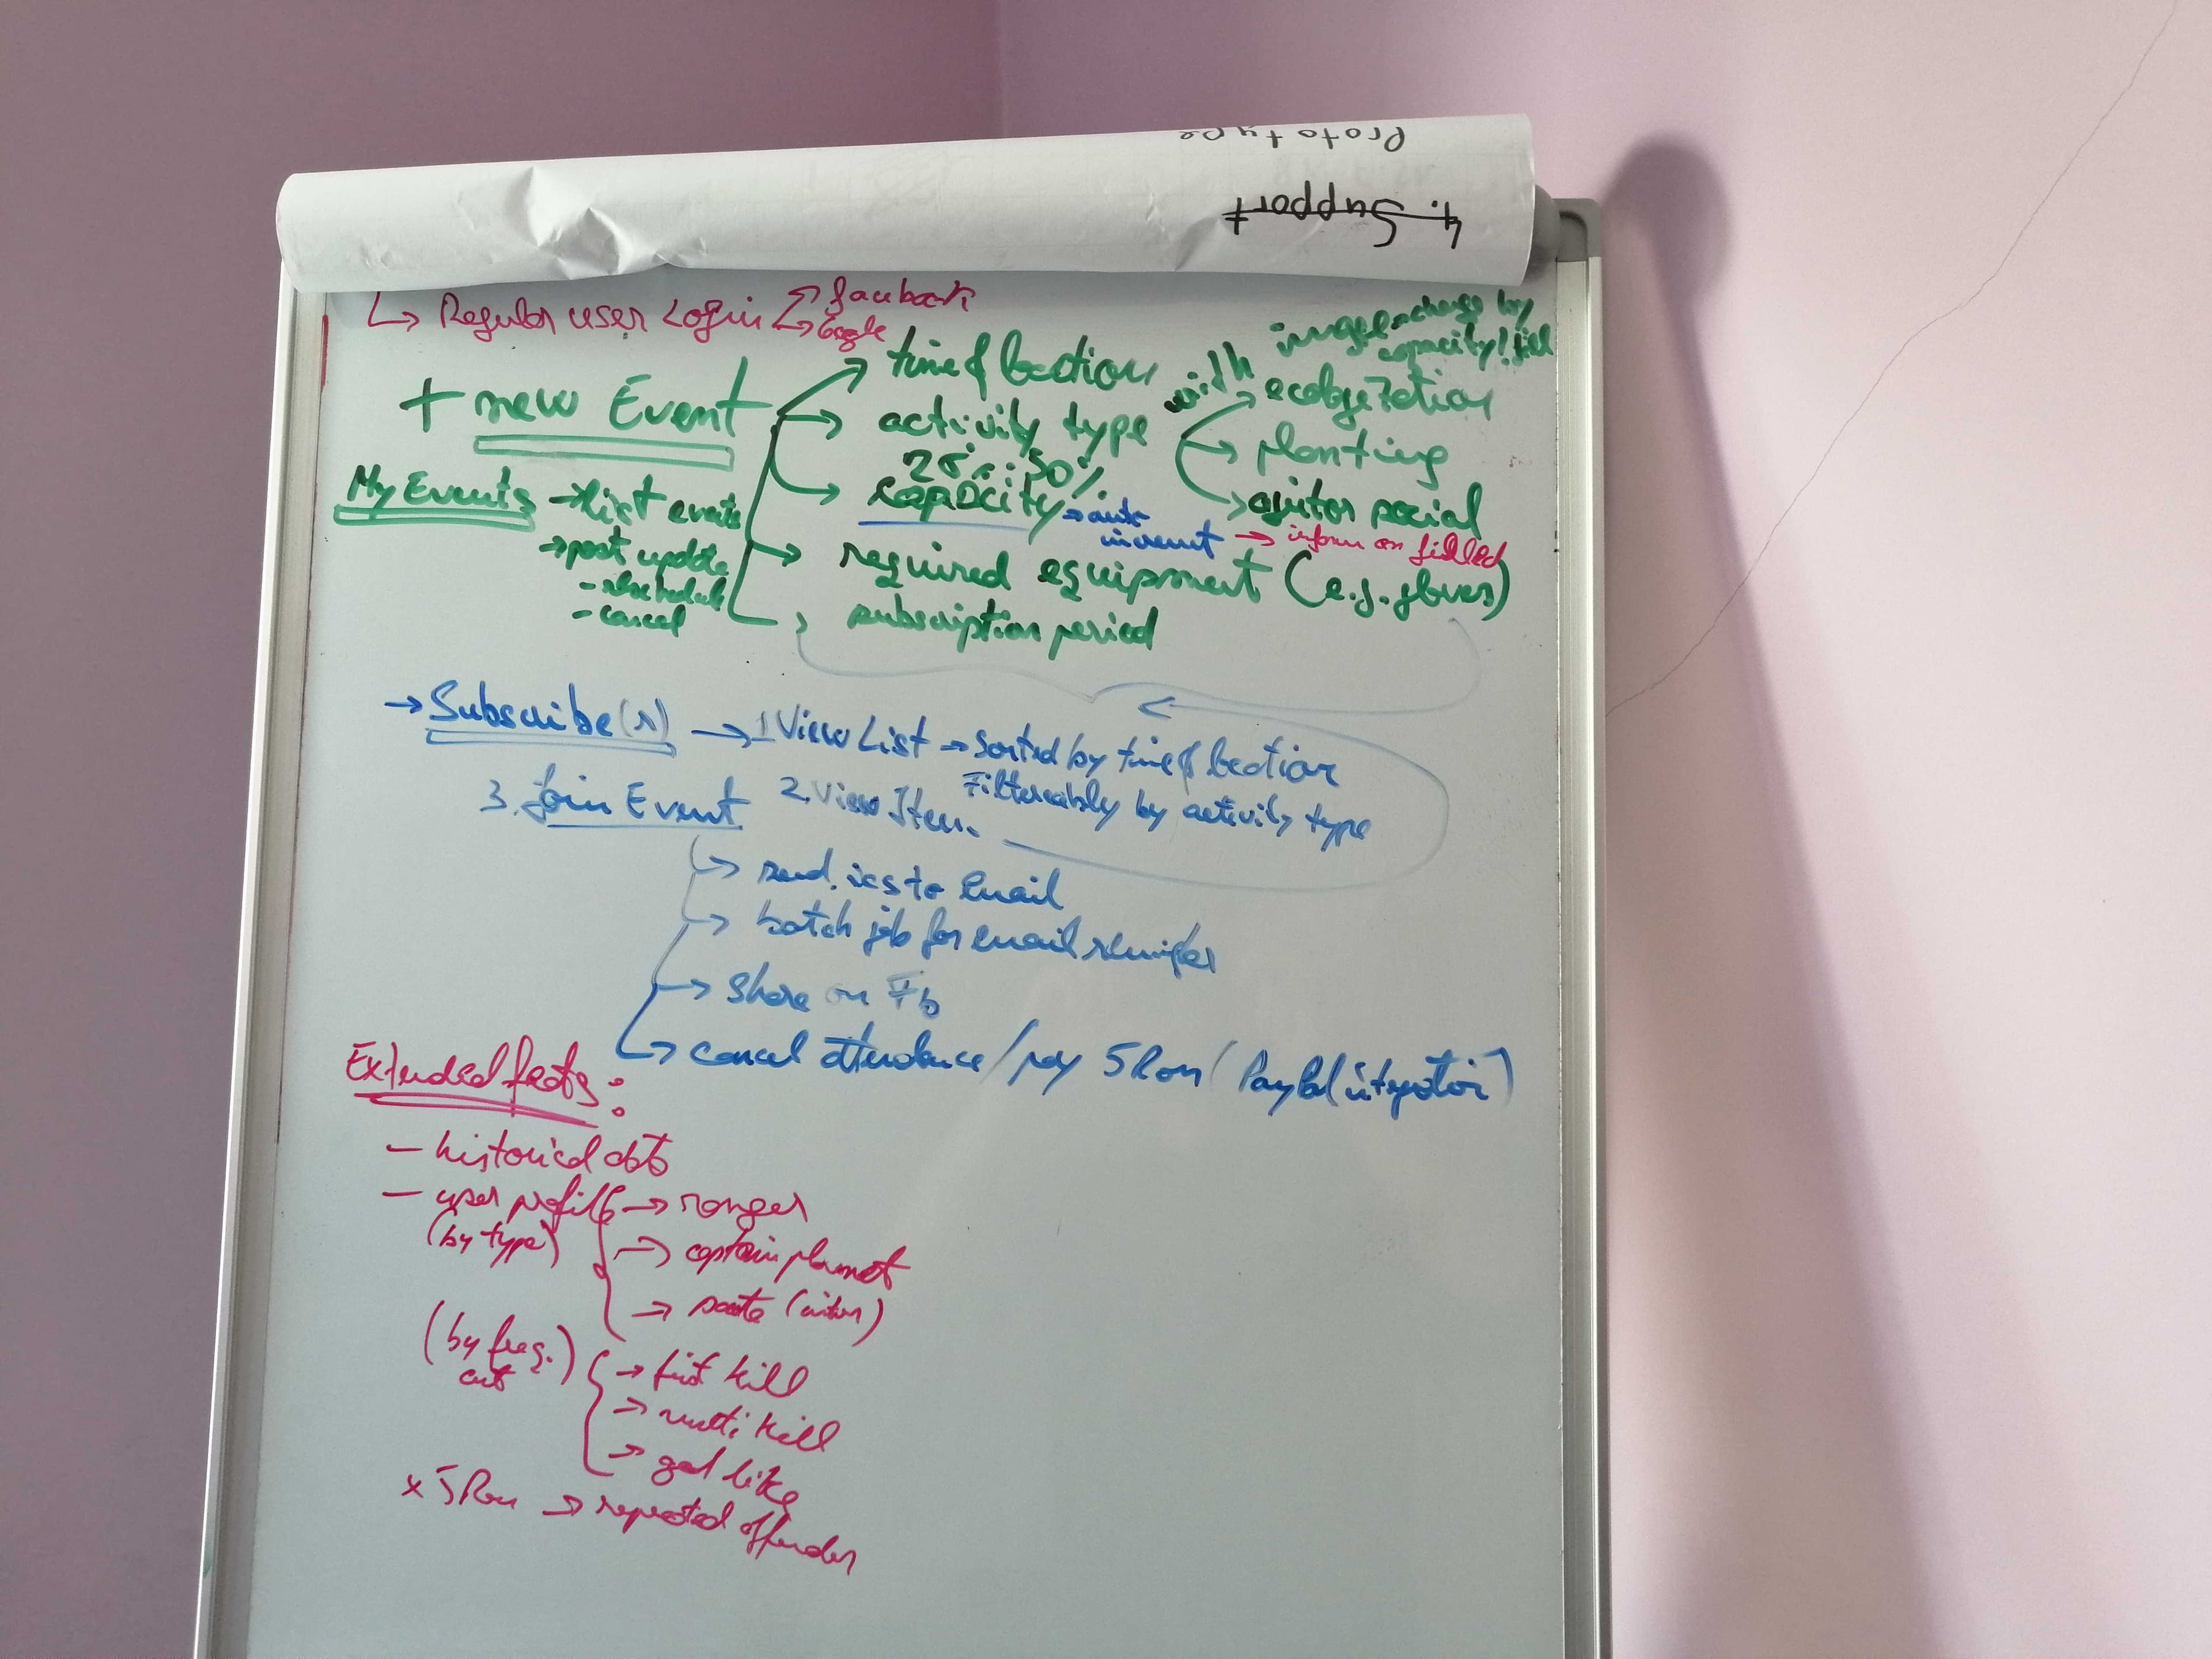 Prototype
4. Support
Regular user Login
facebook
Google
image change by
capacity! fill
+ new Event
time & location
activity type
with
ecologization
planting
ajutor social
25% 50%
capacity
auto
increment
inform on filled
required equipment (e.g. gloves)
subscription period
My Events
list events
post update
- reschedule
- cancel
Subscribe(r)
1 View List
sorted by time & location
Filtereably by activity type
2. View Item.
3. Join Event
send .ics to email
batch job for email reminder
Share on Fb
cancel attendance / pay 5 Ron (PayPal integration)
Extended feats:
- historical data
- user profile
(by type)
ranger
captain planet
(by freq.)
first kill
multi kill
god like
x 5 Ron
repeated offender